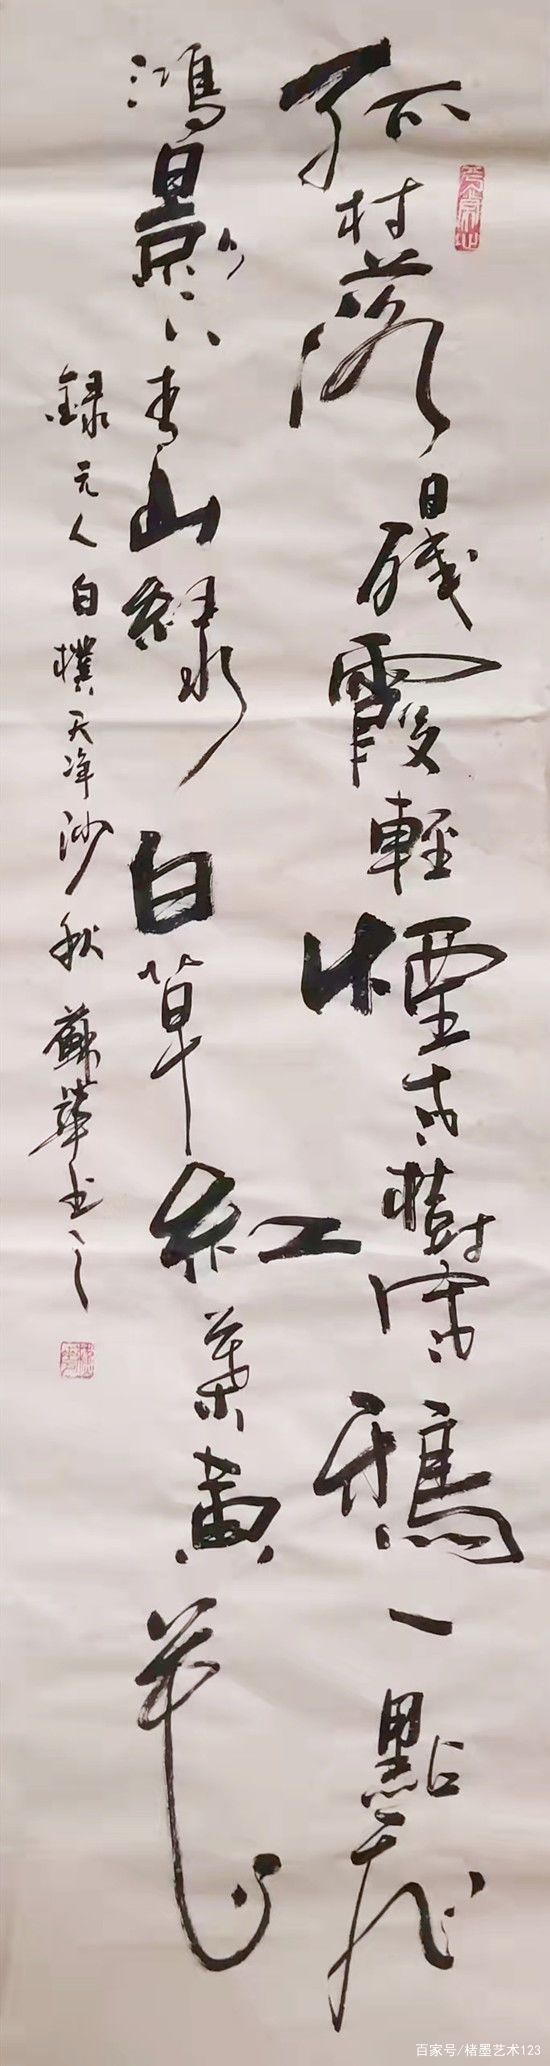 孤村落日殘霞輕煙古樹寒鴉一點飛
鴻影下青山綠水白草紅葉黃花
錄元人白樸天净沙秋 蘇華书之
百家号/楮墨艺术123